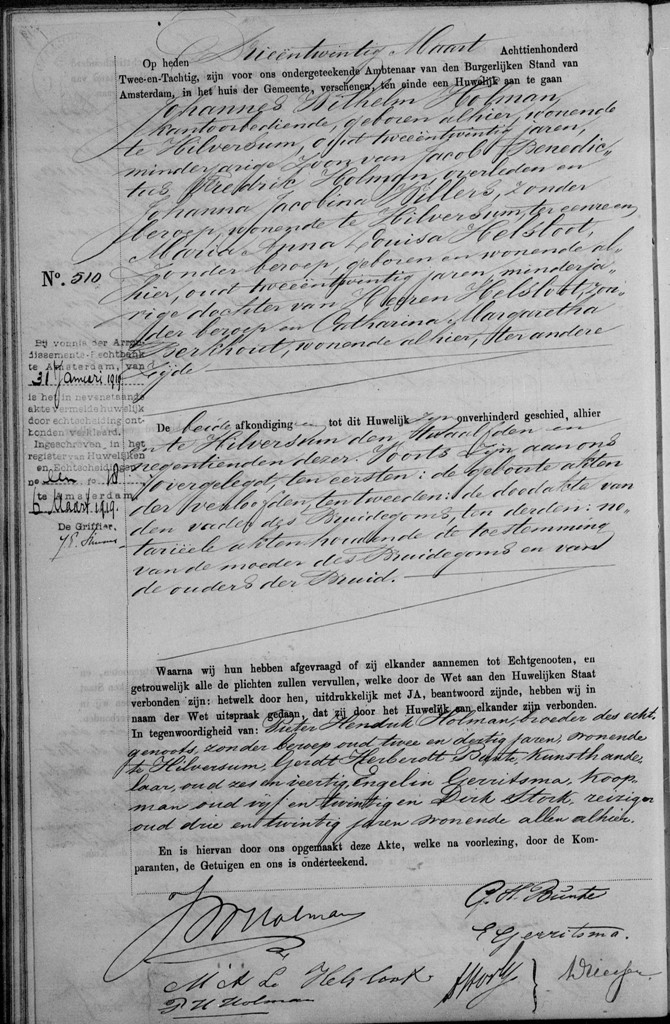 Op heden Drieëntwintig Maart Achttienhonderd
Twee-en-Tachtig, zijn voor ons ondergeteekende Ambtenaar van den Burgerlijken Stand van
Amsterdam, in het huis der Gemeente, verschenen, ten einde een Huwelijk aan te gaan
Johannes Wilhelm Holman,
kantoorbediende, geboren alhier, wonende
te Hilversum, oud tweeëntwintig jaren,
minderjarige Zoon van Jacob Benedic„
tus Fredric Holman, overleden en
Johanna Jacobina Willers, zonder
beroep, wonende te Hilversum, ter eenre en
Maria Anna Louisa Helsloot,
zonder beroep, geboren en wonende al„
hier, oud tweeëntwintig jaren, minderja„
rige dochter van Heeren Helsloot, zon„
der beroep en Catharina Margaretha
Berkhout, wonende alhier, ter andere
zijde
No. 510
Bij vonnis der Arron-
dissements-Rechtbank
te Amsterdam, van
31 Januari 1919
is het in nevenstaande
akte vermelde huwelijk
door echtscheiding ont-
bonden verklaard.
Ingeschreven in het
register van Huwelijken
en Echtscheidingen
fo 18
te Amsterdam
6 Maart 1919.
De Griffier,
De beide afkondigingen tot dit Huwelijk zijn onverhinderd geschied, alhier
en te Hilversum den twaalfden en
negentienden dezer. Voorts zijn aan ons
overgelegd, ten eersten: de geboorte akten
der verloofden, ten tweeden: de doodakte van
den vader des Bruidegoms, ten derden: no„
tariëele akten houdende de toestemming
van de moeder des Bruidegoms en van
de ouders der Bruid.
Waarna wij hun hebben afgevraagd of zij elkander aannemen tot Echtgenooten, en
getrouwelijk alle de plichten zullen vervullen, welke door de Wet aan den Huwelijken Staat
verbonden zijn: hetwelk door hen, uitdrukkelijk met JA, beantwoord zijnde, hebben wij in
naam der Wet uitspraak gedaan, dat zij door het Huwelijk aan elkander zijn verbonden.
In tegenwoordigheid van: Pieter Hendrik Holman, broeder des echt„
genoots, zonder beroep oud twee en dertig jaren, wonende
te Hilversum, Gerdt Herberdt Bunte, kunsthande„
laar, oud zes en veertig, Engelin Gerritsma, koop„
man oud vijf en twintig en Dirk Stork, reiziger
oud drie en twintig jaren wonende allen alhier.
En is hiervan door ons opgemaakt deze Akte, welke na voorlezing, door de Kom-
paranten, de Getuigen en ons is onderteekend.
JW Holman
G. H. Bunte
E Gerritsma.
M A L Helsloot
P H Holman
DStork